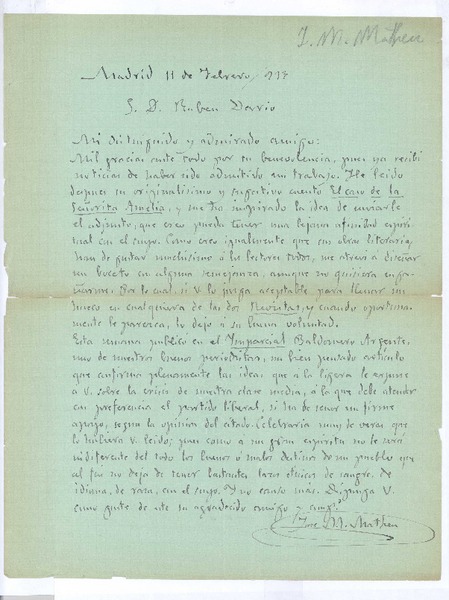 J. M. Matheu
Madrid 11 de Febrero
S. D. Ruben Dario
Mi distinguido y admirado amigo:
Mil gracias ante todo por su benevolencia, pues ya recibí
noticias de haber sido admitido mi trabajo. He leído
despues su originalísimo y sugestivo cuento El caso de la
Señorita Amelia, y me ha inspirado la idea de enviarle
el adjunto, que creo pueda tener una lejana afinidad espiri-
tual con el suyo. Como creo igualmente que sus obras literarias
han de gustar muchísimo á los lectores todos, me atreví a diseñar
un boceto con alguna semejanza, aunque no quisiera enga-
ñarme. Por lo cual, si V. lo juzga aceptable para llenar un
hueco en cualquiera de las dos Revistas, y cuando oportuna-
mente le parezca, lo dejo á su buena voluntad.
Esta semana publicó en el Imparcial Baldomero Argente,
uno de nuestros buenos periodistas, un bien pensado artículo
que confirma plenamente las ideas que á la ligera le expuse
a V. sobre la crisis de nuestra clase media, á la que debe atender
con preferencia el partido liberal, si ha de tener un firme
apoyo, segun la opinión del citado. Celebraría muy de veras que
lo hubiera V. leido; pues como á su gran espíritu no le será
indiferente del todo los buenos ó malos destinos de un pueblo que
al fin no deja de tener bastantes lazos étnicos de sangre, de
idioma, de raza, con el suyo. Y no canso mas. Disponga V.
como guste de este su agradecido amigo y comp.
José M. Matheu